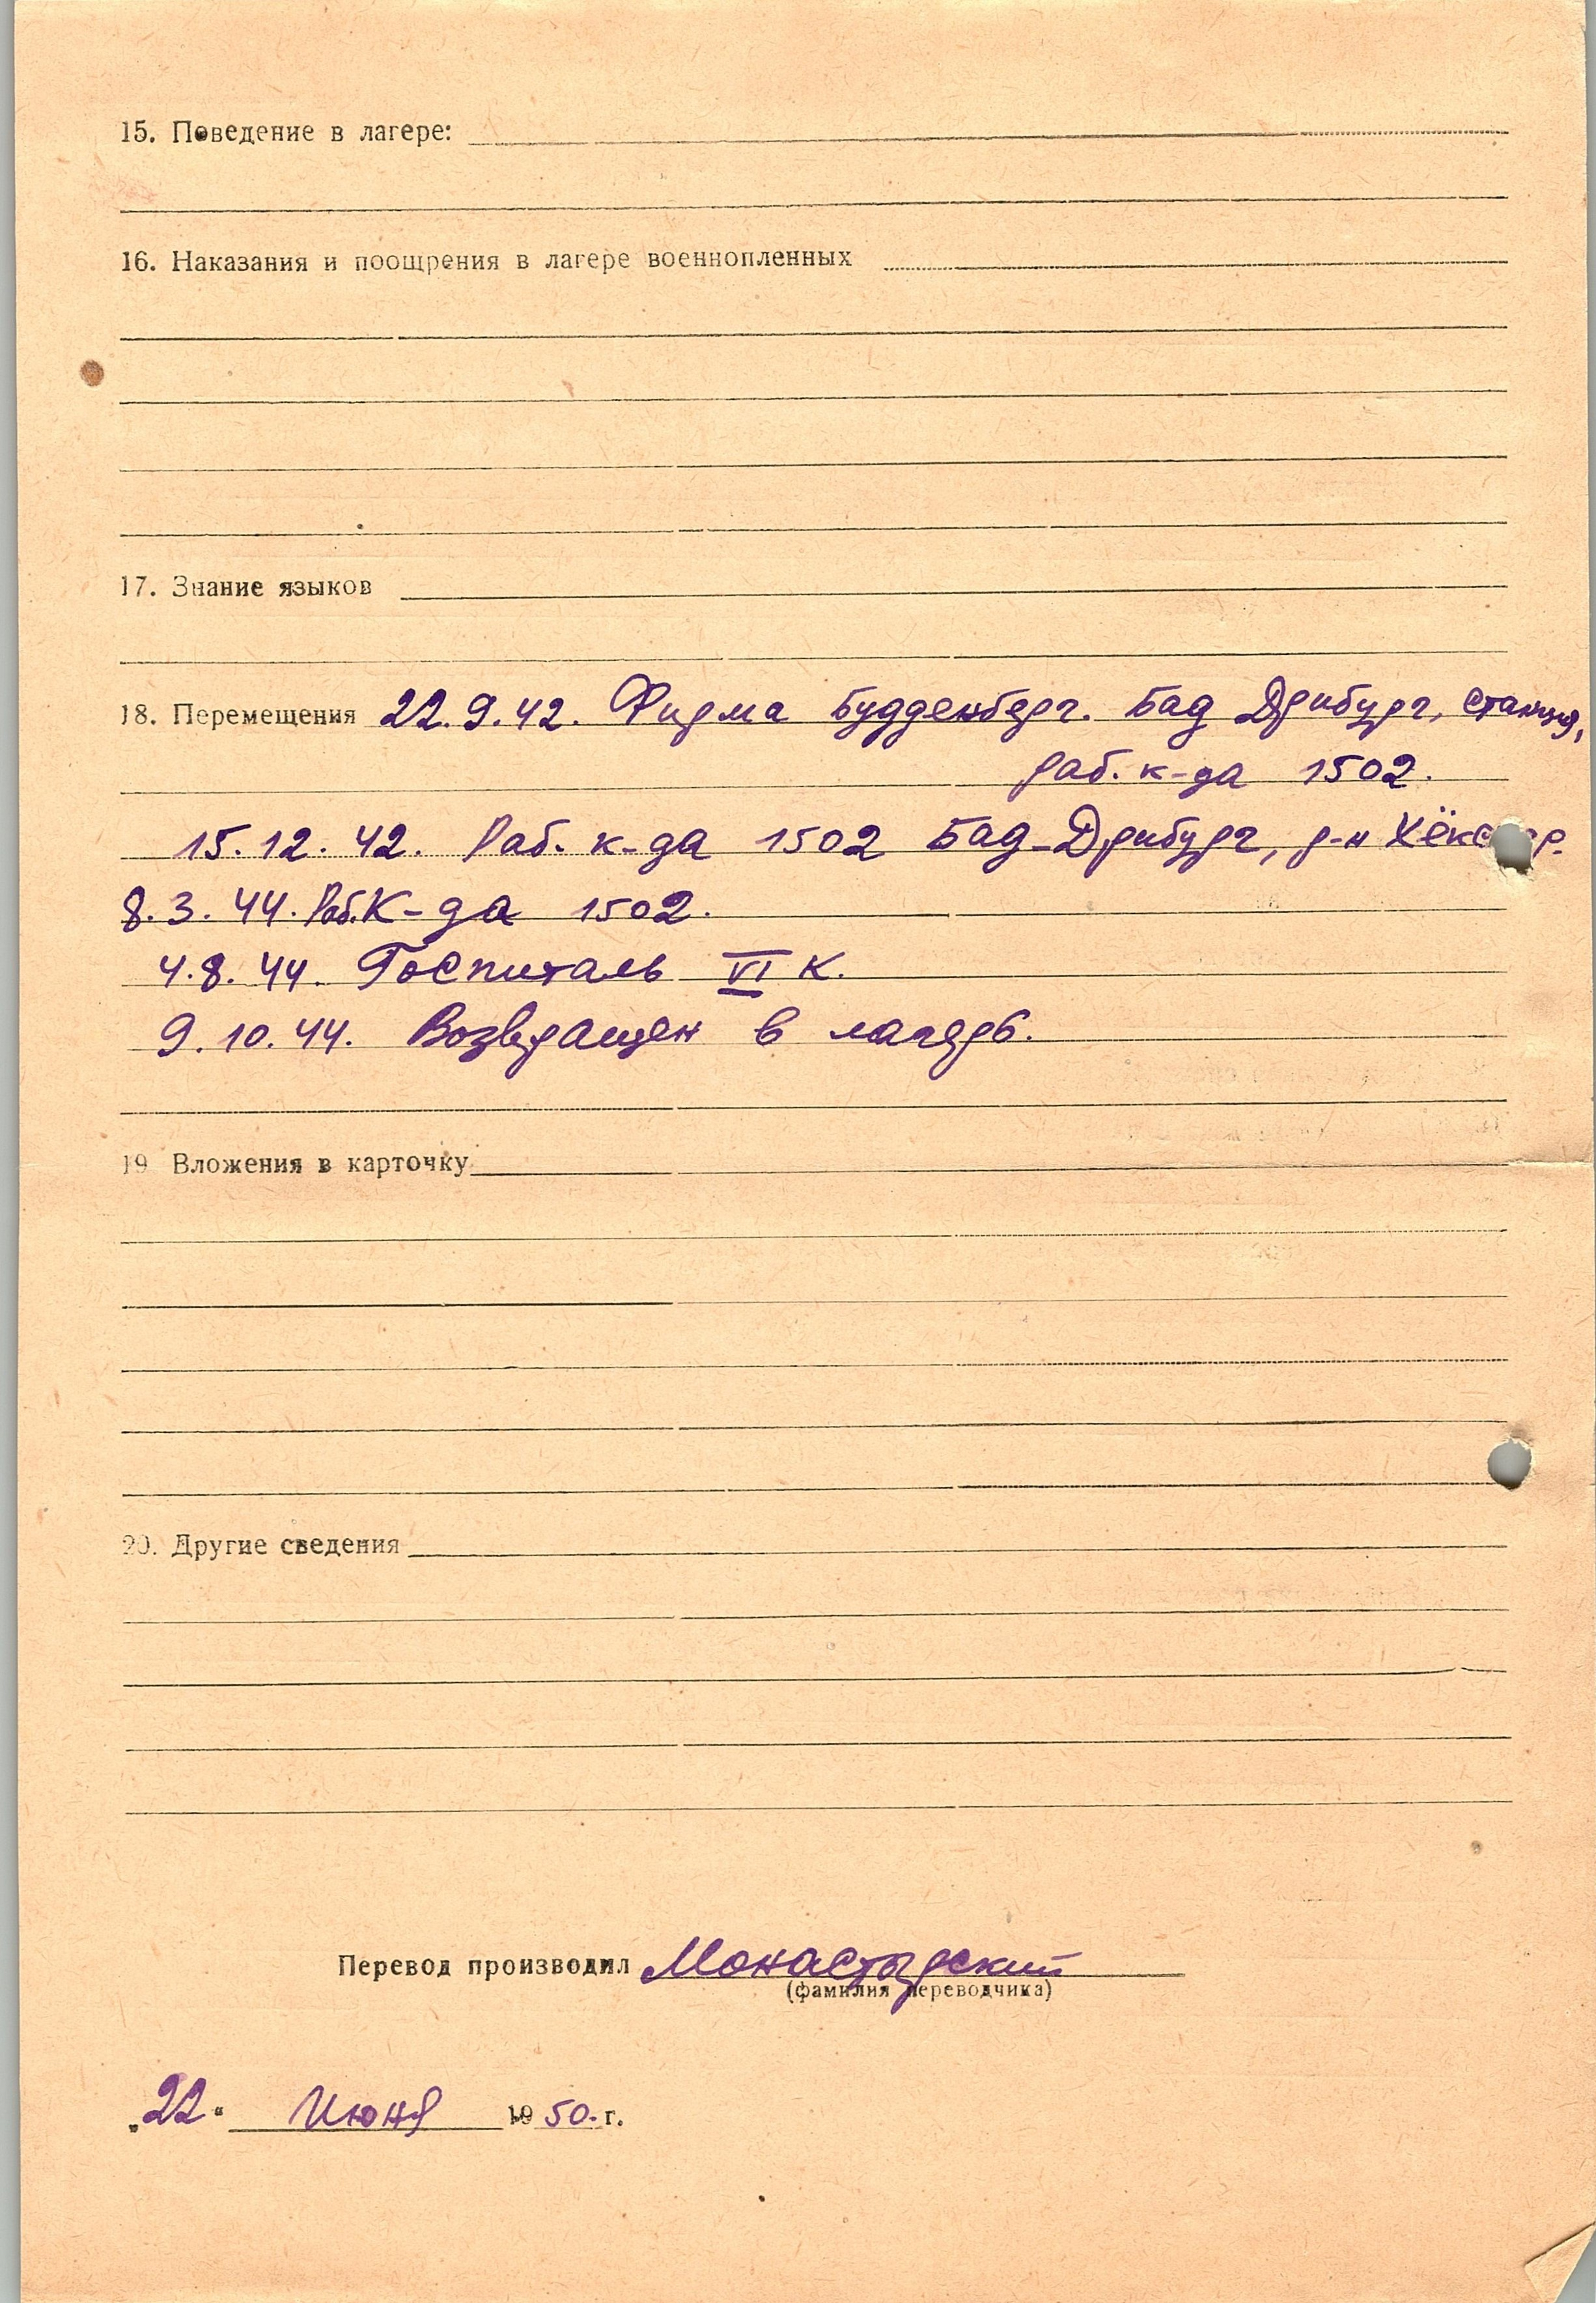 15. Поведение в лагере:
16. Наказания и поощрения в лагере военнопленных
17. Знание языков
18. Перемещения 22.9.42. Фирма Будденберг. Бад Дрибург, станция,
раб. к-да 1502.
15.12.42. Раб. к-да 1502 Бад-Дрибург, р-н
8.3.44. Раб. К-да 1502.
4.8.44. Госпиталь VI К.
9.10.44. Возвращен в лагерь.
19 Вложения в карточку
20. Другие сведения
Перевод производил Монастырский
(фамилия переводчика)
„22“ Июня 1950. г.